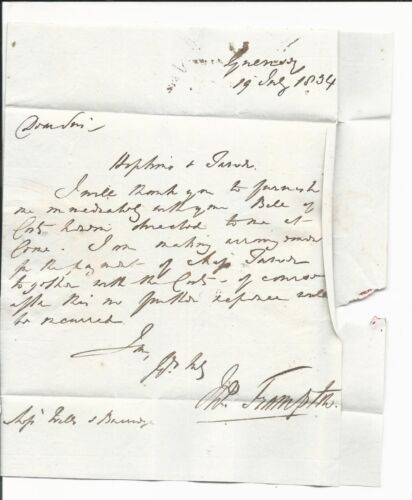 Guernsey
19 July 1834
Dear Sir
Hopkins &
I will thank you to furnish
me immediately with your Bill of
Costs herein directed to me at
I am making arrangements
for the payment of
together with the Costs of course
after this no further expence will
be incurred
I am
Frampton